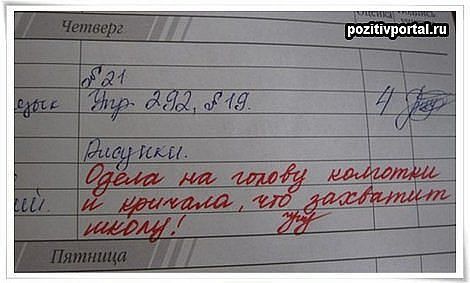 pozitivportal.ru
Четверг
Оценка
§21
язык Упр 292, §19. 4
Рисунки.
Одела на голову колготки
ий. и кричала, что захватит
школу!
Пятница